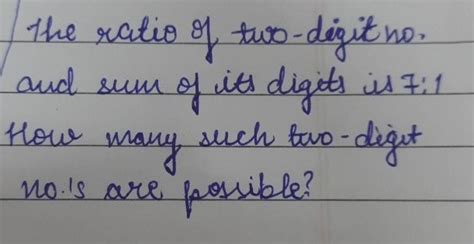 The ratio of two-digit no.
and sum of its digits is 7:1
How many such two-digit
no.'s are possible?